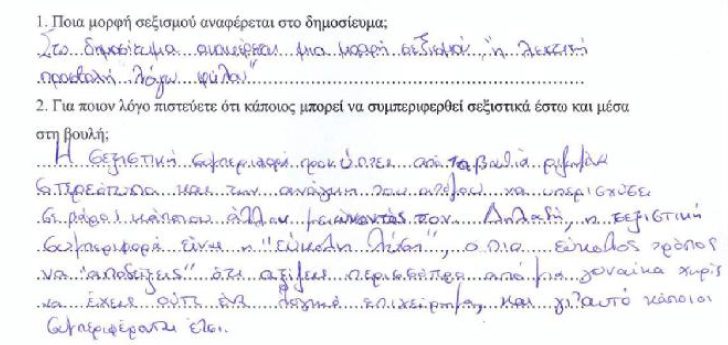 1. Ποια μορφή σεξισμού αναφέρεται στο δημοσίευμα;
Στο δημοσίευμα αναφέρεται μια μορφή σεξισμού, "η λεκτική
προσβολή λόγω φύλου"
2. Για ποιον λόγο πιστεύετε ότι κάποιος μπορεί να συμπεριφερθεί σεξιστικά έστω και μέσα
στη βουλή;
Η σεξιστική συμπεριφορά προκύπτει από τα βαθιά ριζωμένα
στερεότυπα και την ανάγκη του ατόμου να υπερισχύσει
σε βάρος κάποιου άλλου μειώνοντάς τον. Δηλαδή, η σεξιστική
συμπεριφορά είναι η "εύκολη λύση", ο πιο εύκολος τρόπος
να "αποδείξεις" ότι αξίζεις περισσότερο από μια γυναίκα χωρίς
να έχεις ούτε ένα λογικό επιχείρημα, και γι'αυτό κάποιοι
συμπεριφέρονται έτσι.